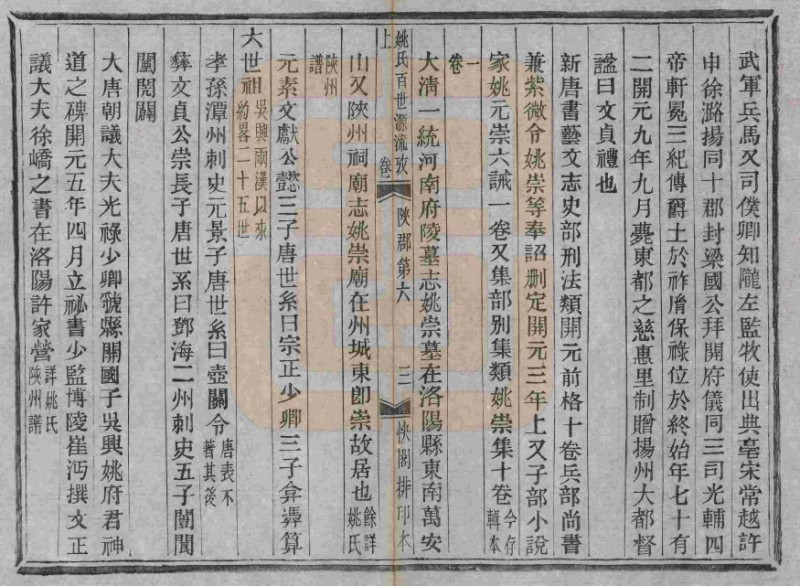 武軍兵馬又司僕卿知隴左監牧使出典亳宋常越許
申徐潞揚同十郡封梁國公拜開府儀同三司光輔四
帝軒冕三紀傳爵土於祚胤保祿位於終始年七十有
二開元九年九月薨東都之慈惠里制贈揚州大都督
謚曰文貞禮也
新唐書藝文志史部刑法類開元前格十卷兵部尚書
兼紫微令姚崇等奉詔刪定開元三年上又子部小說
家姚元崇六誡一卷又集部別集類姚崇集十卷今存輯本
一卷
大清一統河南府陵墓志姚崇墓在洛陽縣東南萬安
姚氏百世源流攷上 卷二 陝郡第六 三 快閣排印本
山又陝州祠廟志姚崇廟在州城東卽崇故居也餘詳姚氏
陝州譜
元素文獻公懿三子唐世系曰宗正少卿三子弇彝算
六世祖吳興兩漢以來約畧二十五世
孝孫潭州刺史元景子唐世系曰壺關令唐表不著其後
彝文貞公崇長子唐世系曰鄧海二州刺史五子闓聞
闉閱闢
大唐朝議大夫光祿少卿虢縣開國子吳興姚府君神
道之碑開元五年四月立祕書少監博陵崔沔撰文正
議大夫徐嶠之書在洛陽許家營詳姚氏陝州譜